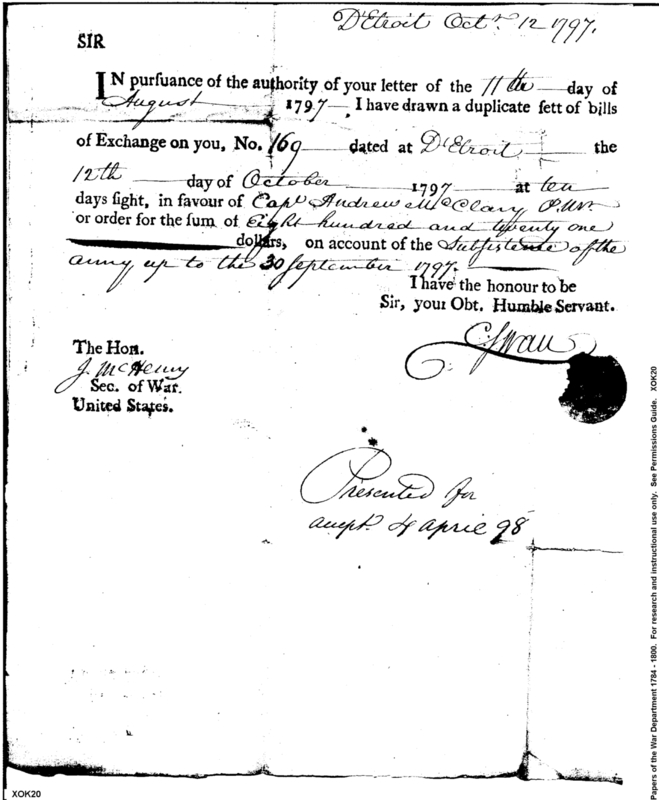 D'Etroit Octr. 12 1797.
SIR
IN pursuance of the authority of your letter of the 11th day of
August 1797, I have drawn a duplicate sett of bills
of Exchange on you, No. 169 dated at D'Etroit the
12th day of October 1797 at ten
days sight, in favour of Capt Andrew McClary P.Mr.
or order for the sum of Eight hundred and twenty one
dollars, on account of the Subsistence of the
army up to the 30 September 1797.
I have the honour to be
Sir, your Obt. Humble Servant.
C Swan
The Hon.
J. McHenry
Sec. of War.
United States.
Presented for
accept. 4 april 98
Papers of the War Department 1784 - 1800. For research and instructional use only. See Permissions Guide. XOK20
XOK20